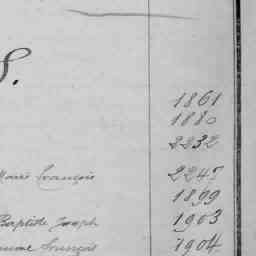 S.
1861
1880
2232
François 2245
1899
Baptiste Joseph 1903
François 1904